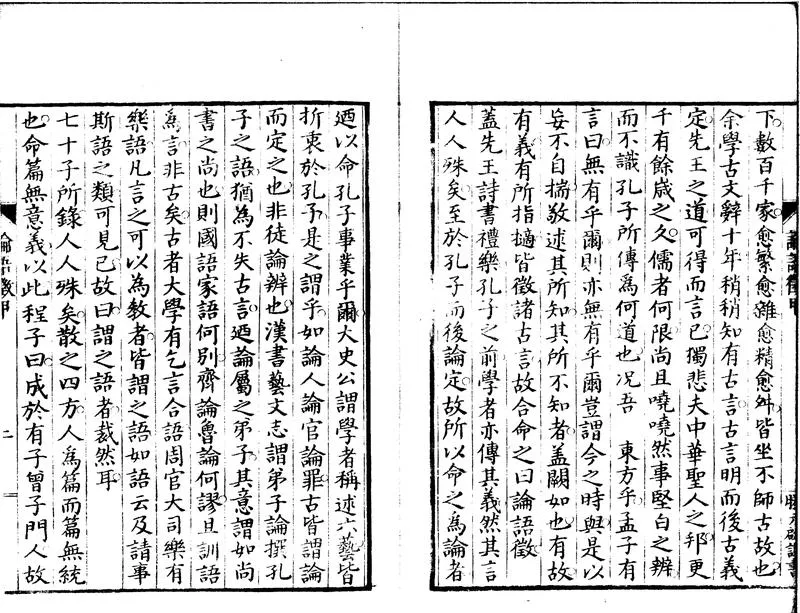 下數百千家愈繁愈雜愈精愈舛皆坐不師古故也
余學古文辭十年稍稍知有古言古言明而後古義
定先王之道可得而言已獨悲夫中華聖人之邦更
千有餘歲之久儒者何限尚且嘵嘵然事堅白之辨
而不識孔子所傳為何道也况吾 東方乎孟子有
言曰無有乎爾則亦無有乎爾豈謂今之時與是以
妄不自揣敬述其所知其所不知者蓋闕如也有故
有義有所指擿皆徵諸古言故合命之曰論語徵
蓋先王詩書禮樂孔子之前學者亦傳其義然其言
人人殊矣至於孔子而後論定故所以命之為論者
廼以命孔子事業乎爾大史公謂學者稱述六藝皆
折衷於孔子是之謂乎如論人論官論罪古皆謂論
而定之也非徒論辨也漢書藝文志謂弟子論撰孔
子之語猶為不失古言廼論屬之弟子其意謂如尚
書之尚也則國語家語何別齊論魯論何謬且訓語
為言非古矣古者大學有乞言合語周官大司樂有
樂語凡言之可以為教者皆謂之語如語云及請事
斯語之類可見已故曰謂之語者裁然耳
七十子所錄人人殊矣散之四方人為篇而篇無統
也命篇無意義以此程子曰成於有子曾子門人故
論語徵甲
二